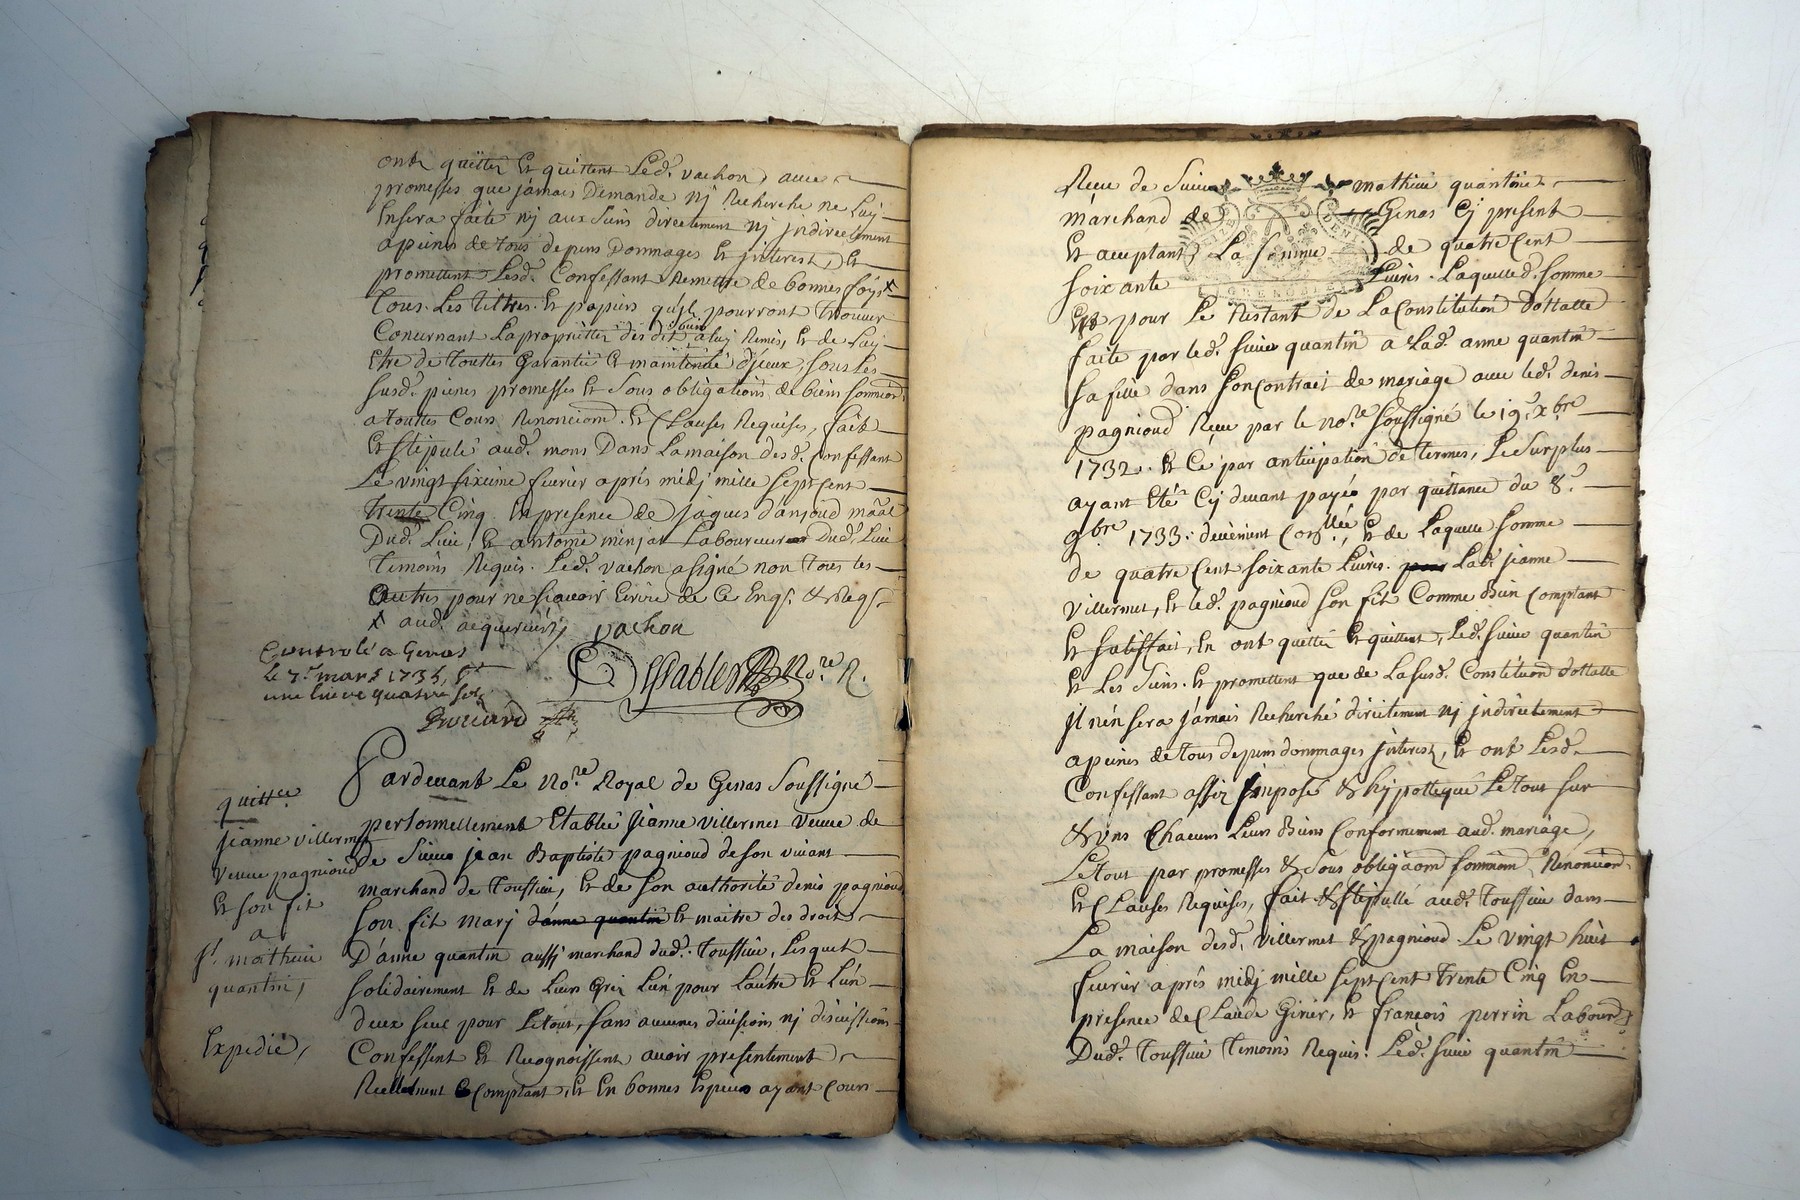 ont quitté et quittent Led. vachon, avec
promesses que jamais Demande nj Recherche ne Luj
Insera faite nj aux siens directement nj jndirectement
apeines de tous depens Dommages et jnterest, et
promettent Lesd. Confessant Remettre de bonnes foys x
Tous Les titres et papiers qu'jls pourront trouver
Concernant La proprietter des dit aluj Remis, et de Luj
Etre de touttes Garantie et maintenüe d'jceux, sous Les
susd. peines promesses et sous obligations de biens
atouttes Cours Renonciond. et Clauses Requises, fait
et stipulé aud. mons Dans La maison desd. Confessant
Le vingt sixieme fevrier aprés midj mille sept cent
trente Cinq En presence de jaques d'anjoud
Dud. Lieu, et antoine minjat Laboureur Dud. Lieu
Temoins Requis. Led. vachon a signé non tous les
autres pour ne sçavoir Ecrire de Ce Enqs. & Reqs.
x aud. acquereur vachon
Controlé a Genas
le 7e mars 1735,
une livre quatre sols
No.re R.
Pardevant Le No.re Royal de Genas Soussigné
quitt.ce
personnellement Etablie Jeanne villermet veuve de
jeanne villermet
de Sieur jean Baptiste pagnioud de son vivant
veuve pagnioud
marchand de Toussieu, et de son authorité denis pagnioud
et son fit
son fit marj d'anne quantin et maitre des droits
a
D'anne quantin aussi marchand dud. Toussieu, Lesquels
sr. mathieu
quantin,
solidairement et de Leurs Grez L'un pour L'autre et L'un
deux seul pour Letout, sans aucunes divisions nj discussions
Expedié,
Confessent et Recognoissent avoir presentement
Reellement Comptant, et En bonnes Especes ayant cours
Receu de Sieur mathieu quantin
marchand de Genas Cj present
et acceptant, La somme de quatre Cent
soixante Livres. Laquelled. somme
GRENOBLE
pour Le Restant de La Constitution dottalle
faite par led. sieur quantin a Lad. anne quantin
sa fille dans son contrait de mariage avec led. denis
pagnioud Receu par le no.re soussigné le 19. xbre
1732. et Ce par anticipation de termes, Le surplus
ayant Eté Cj devant payés par quittance du 8.e
9bre 1733. deüement Con.llée, et de Laquelle somme
de quatre Cent soixante Livres. Lad. jeanne
villermet, et led. pagnioud son fit Comme Bien Comptant
et satisfait, En ont quitté et quittent, Led. sieur quantin
et Les siens. et promettent que de La susd. Constitution dottalle
jl n'en sera jamais Recherché directement nj jndirectement
apeines de tous depens dommages jnterest, et ont Lesd.
Confessant assis jmposés & hÿpottequé Letout sur
& uns Chacuns Leurs Biens Conformement aud. mariage,
Letout par promesses & sous obligãom, Renonciond.
et Clauses Requises, fait & stipullé aud. Toussieu dans
La maison desd. villermet & pagnioud Le vingt huit
fevrier aprés midj mille sept Cent trente Cinq En
presence de Claude Girier, et françois perrin Labour.
Dud. Toussieu temoins Requis. Led. sieur quantin